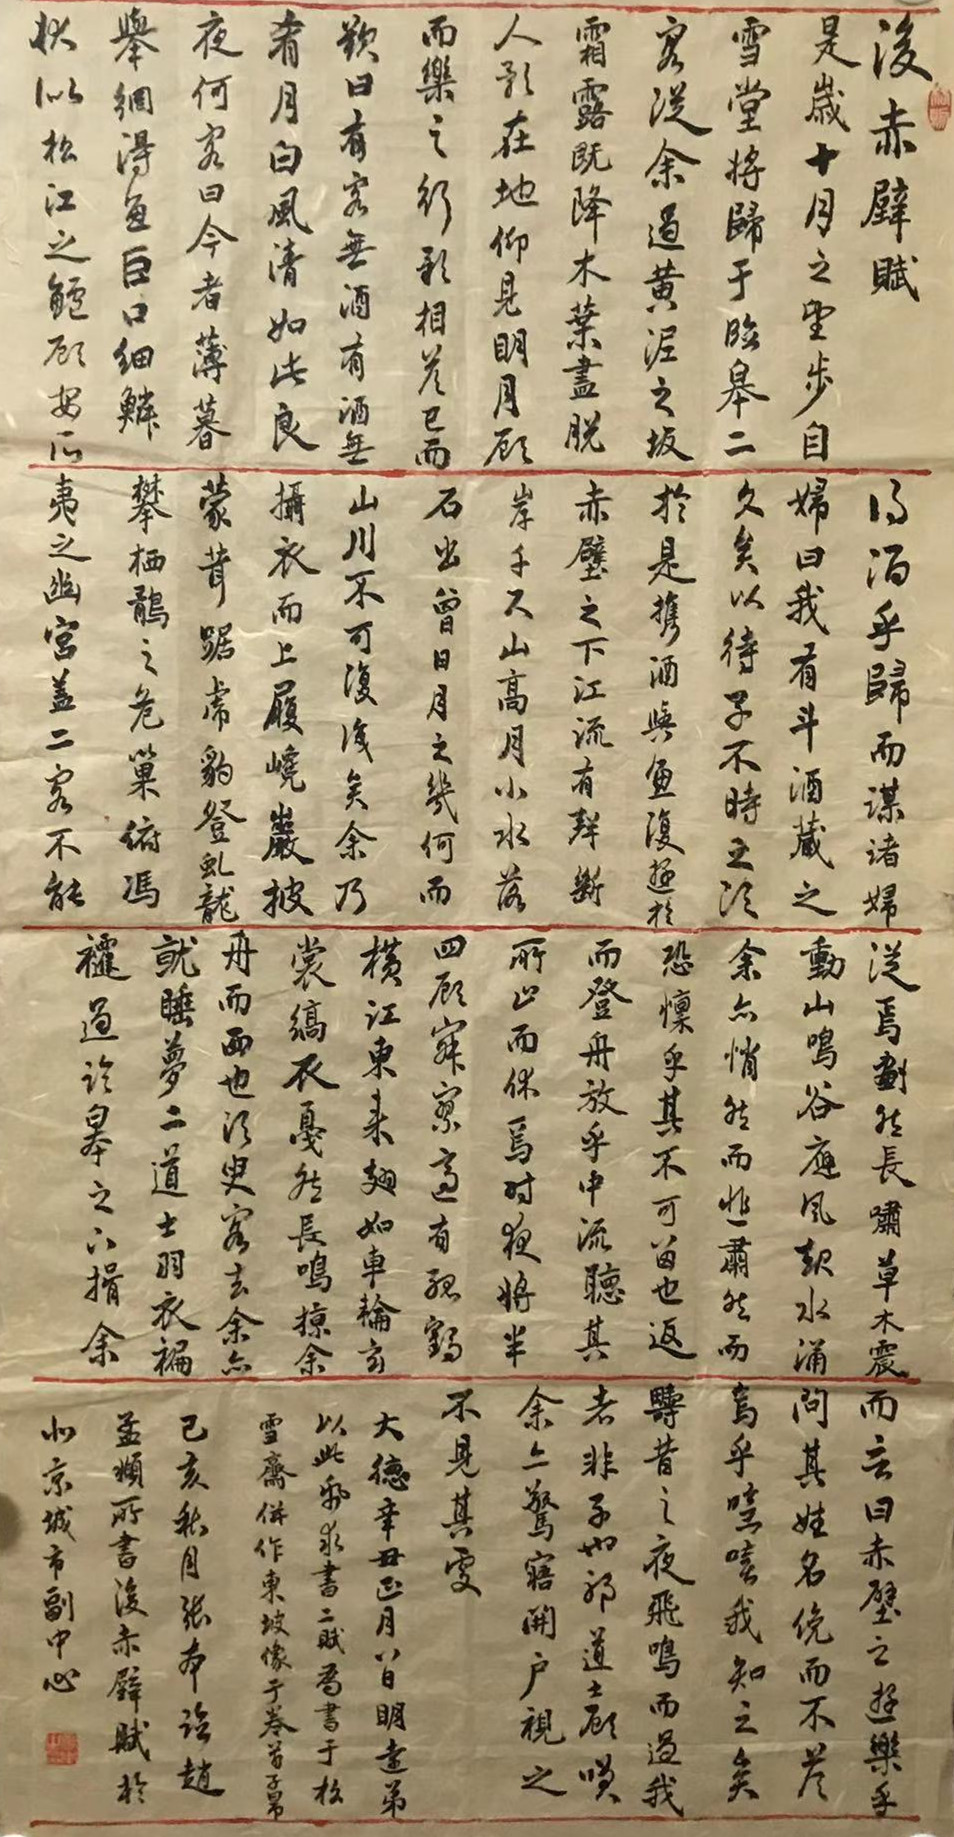 後赤壁賦
是歲十月之望步自
雪堂將歸于臨皋二
客從余過黃泥之坂
霜露既降木葉盡脫
人影在地仰見明月顧
而樂之行歌相答已而
歎曰有客無酒有酒無
肴月白風清如此良
夜何客曰今者薄暮
舉網得魚巨口細鱗
狀似松江之鱸顧安所
得酒乎歸而謀諸婦
婦曰我有斗酒藏之
久矣以待子不時之須
於是攜酒與魚復遊於
赤壁之下江流有聲斷
岸千尺山高月小水落
石出曾日月之幾何而
山川不可復識矣余乃
攝衣而上履巉巖披
蒙茸踞虎豹登虬龍
攀栖鶻之危巢俯馮
夷之幽宮蓋二客不能
從焉劃然長嘯草木震
動山鳴谷應風起水涌
余亦悄然而悲肅然而
恐凜乎其不可留也返
而登舟放乎中流聽其
所止而休焉時夜將半
四顧寂寥適有孤鶴
橫江東來翅如車輪玄
裳縞衣戛然長鳴掠余
舟而西也須臾客去余亦
就睡夢二道士羽衣褊
襹過臨皋之下揖余
而言曰赤壁之遊樂乎
問其姓名俛而不答
嗚乎噫嘻我知之矣
疇昔之夜飛鳴而過我
者非子也耶道士顧嘆
余亦驚寤開戶視之
不見其處
大德辛丑正月八日明遠弟
以此紙求書二賦為書于松
雪齋併作東坡像于卷首子昂
己亥秋月張本臨趙
孟頫所書後赤壁賦於
北京城市副中心